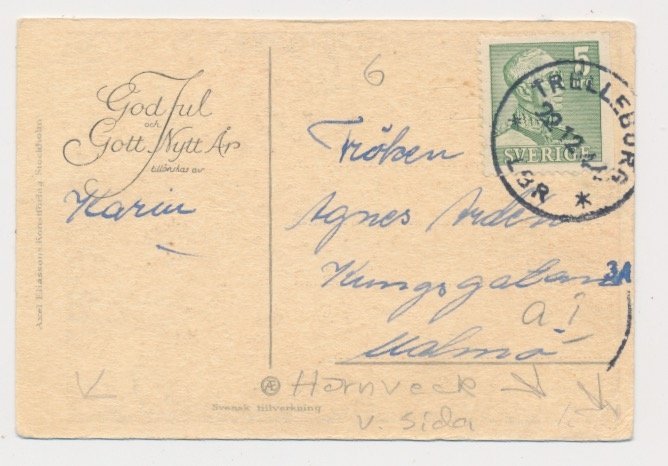 Axel Eliassons Konstförlag Stockholm
God Jul
och
Gott Nytt År
tillönskas av
Karin
6
5
SVERIGE
TRELLEBORG
22.12.44
* LBR *
Fröken
Agnes
Kungsgatan
3A
a i
Malmö
Æ
Hörnveck
v. sida
Svensk tillverkning